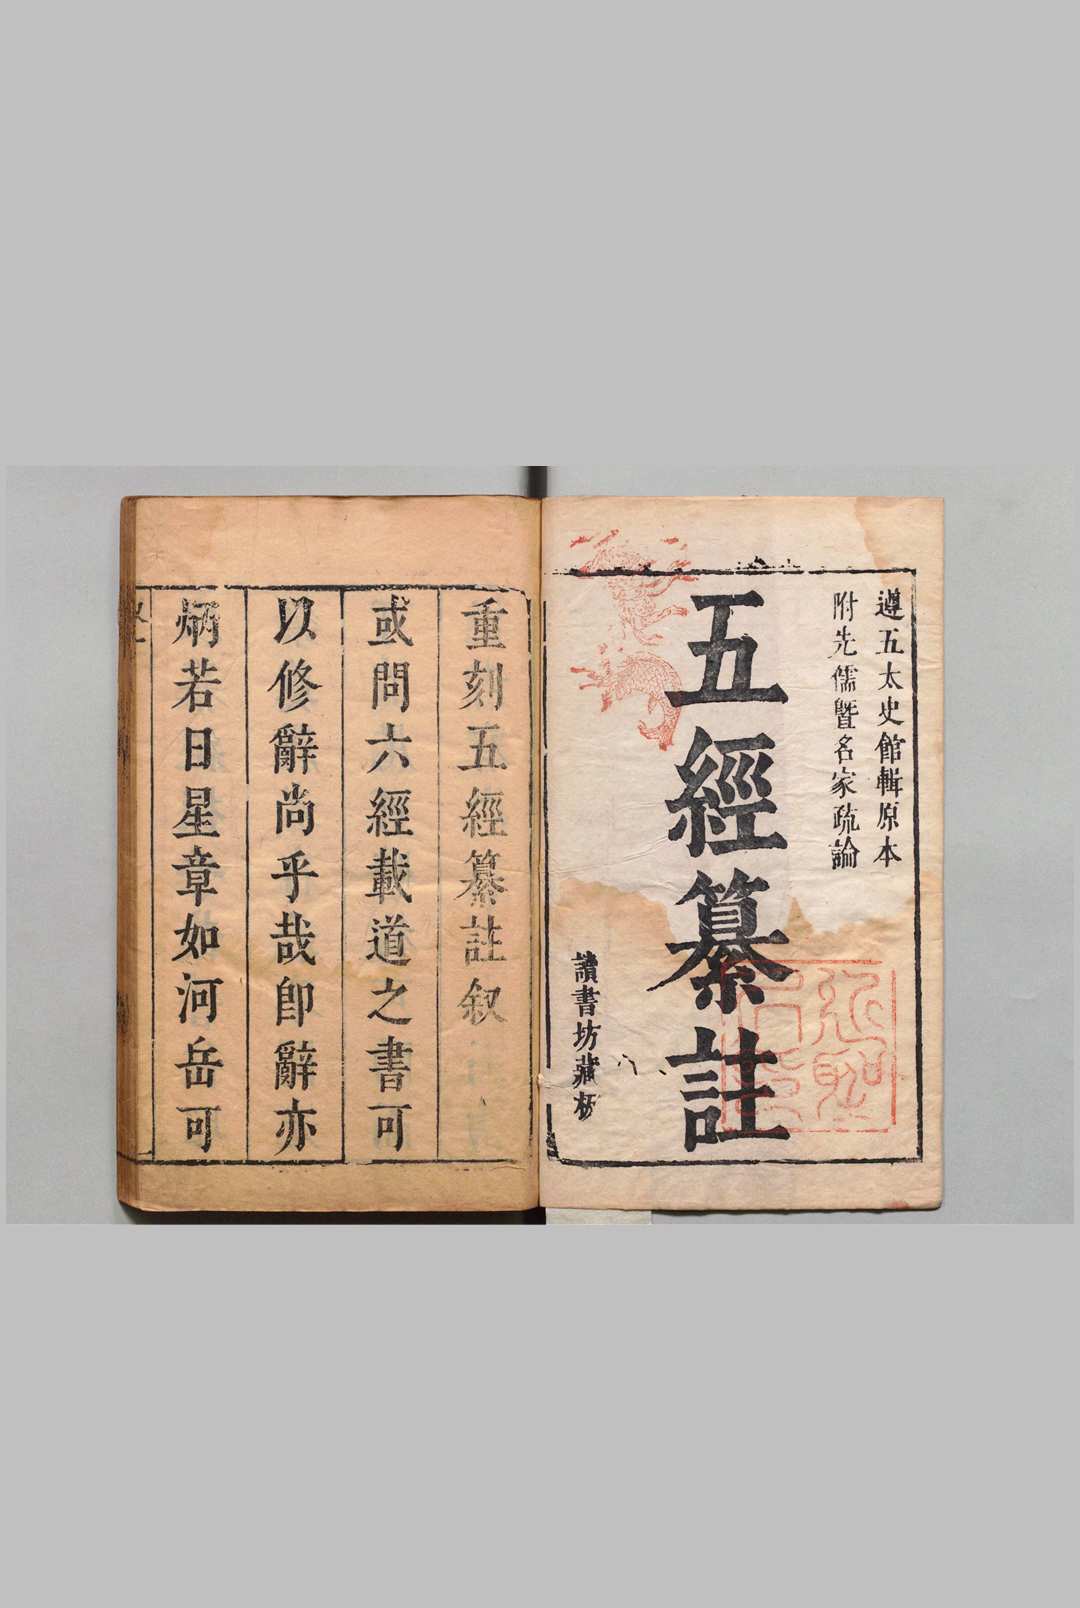 遵五太史館輯原本
附先儒暨名家疏論
五經纂註
讀書坊藏板
重刻五經纂註叙
或問六經載道之書可
以修辭尚乎哉卽辭亦
炳若日星章如河岳可